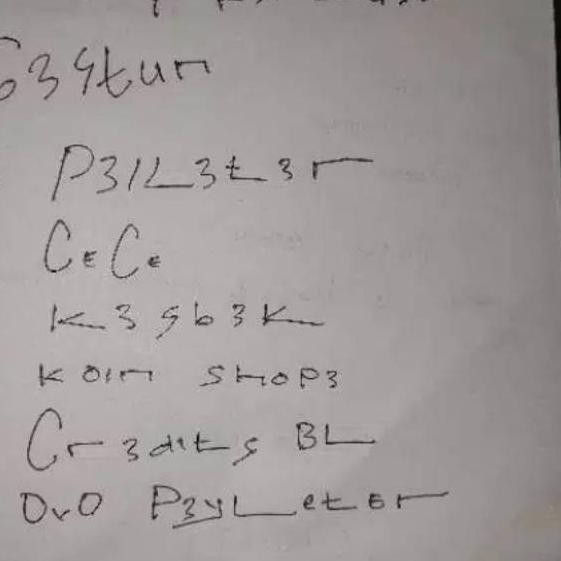 G34tun
P3lL3t3r
CECe
K3sb3K
KOIn SHOP3
Cr3dits BL
OvO P3yLeter